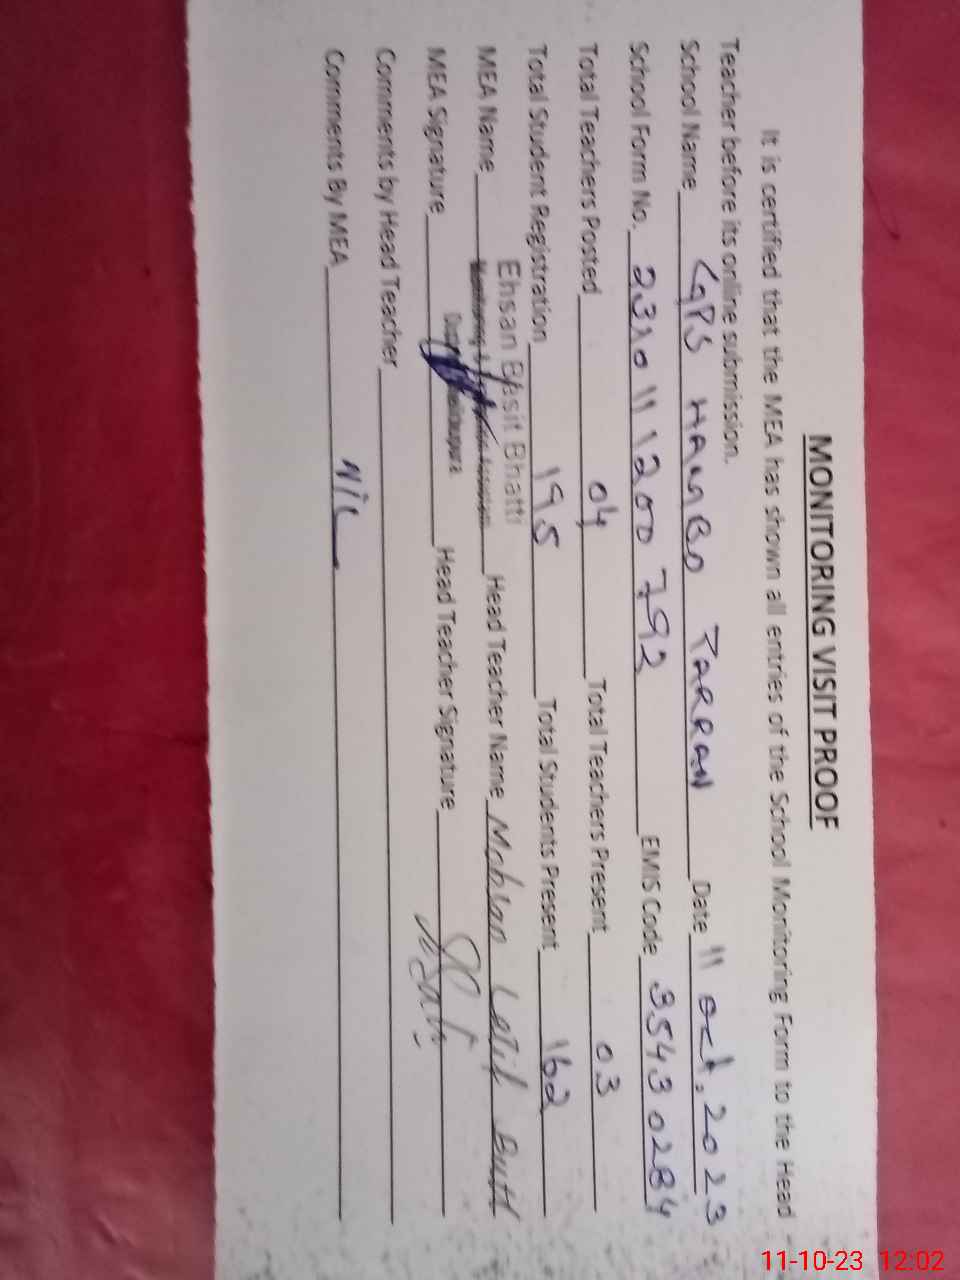 MONITORING VISIT PROOF
It is certified that the MEA has shown all entries of the School Monitoring Form to the Head
Teacher before its online submission.
School Name GPS HAMBO TARRAN Date 11 Oct, 2023
School Form No. 231011 1200 792 EMIS Code 35430284
Total Teachers Posted 04 Total Teachers Present 03
Total Student Registration 195 Total Students Present 162
MEA Name Ehsan Basit Bhatti Head Teacher Name Mohsan Latif Butt
MEA Signature Head Teacher Signature
Comments by Head Teacher
Comments By MEA NIL
11-10-23 12:02